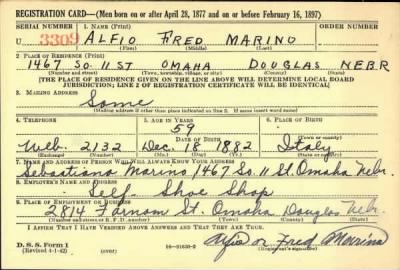 REGISTRATION CARD—(Men born on or after April 28, 1877 and on or before February 16, 1897)
SERIAL NUMBER 1. NAME (Print)
U 3309 ALFIO FRED MARINO
(First) (Middle) (Last)
2. PLACE OF RESIDENCE (Print)
1467 SO. 11 ST OMAHA DOUGLAS NEBR
(Number and street) (Town, township, village, or city) (County) (State)
[THE PLACE OF RESIDENCE GIVEN ON THE LINE ABOVE WILL DETERMINE LOCAL BOARD
JURISDICTION; LINE 2 OF REGISTRATION CERTIFICATE WILL BE IDENTICAL]
3. MAILING ADDRESS
Same
[Mailing address if other than place indicated on line 2. If same insert word same]
4. TELEPHONE 5. AGE IN YEARS 6. PLACE OF BIRTH
59
DATE OF BIRTH (Town or county)
Web. 2132 Dec. 18 1882 Italy
(Exchange) (Number) (Mo.) (Day) (Yr.) (State or country)
7. NAME AND ADDRESS OF PERSON WHO WILL ALWAYS KNOW YOUR ADDRESS
Sebastiano Marino 1467 So. 11 St. Omaha Nebr.
8. EMPLOYER'S NAME AND ADDRESS
Self Shoe Shop
9. PLACE OF EMPLOYMENT OR BUSINESS
2814 Farnam St. Omaha Douglas Nebr.
(Number and street or R. F. D. number) (Town) (County) (State)
I AFFIRM THAT I HAVE VERIFIED ABOVE ANSWERS AND THAT THEY ARE TRUE.
D. S. S. Form 1
(Revised 4-1-42) Alfio or Fred Marino
(Registrant's signature)